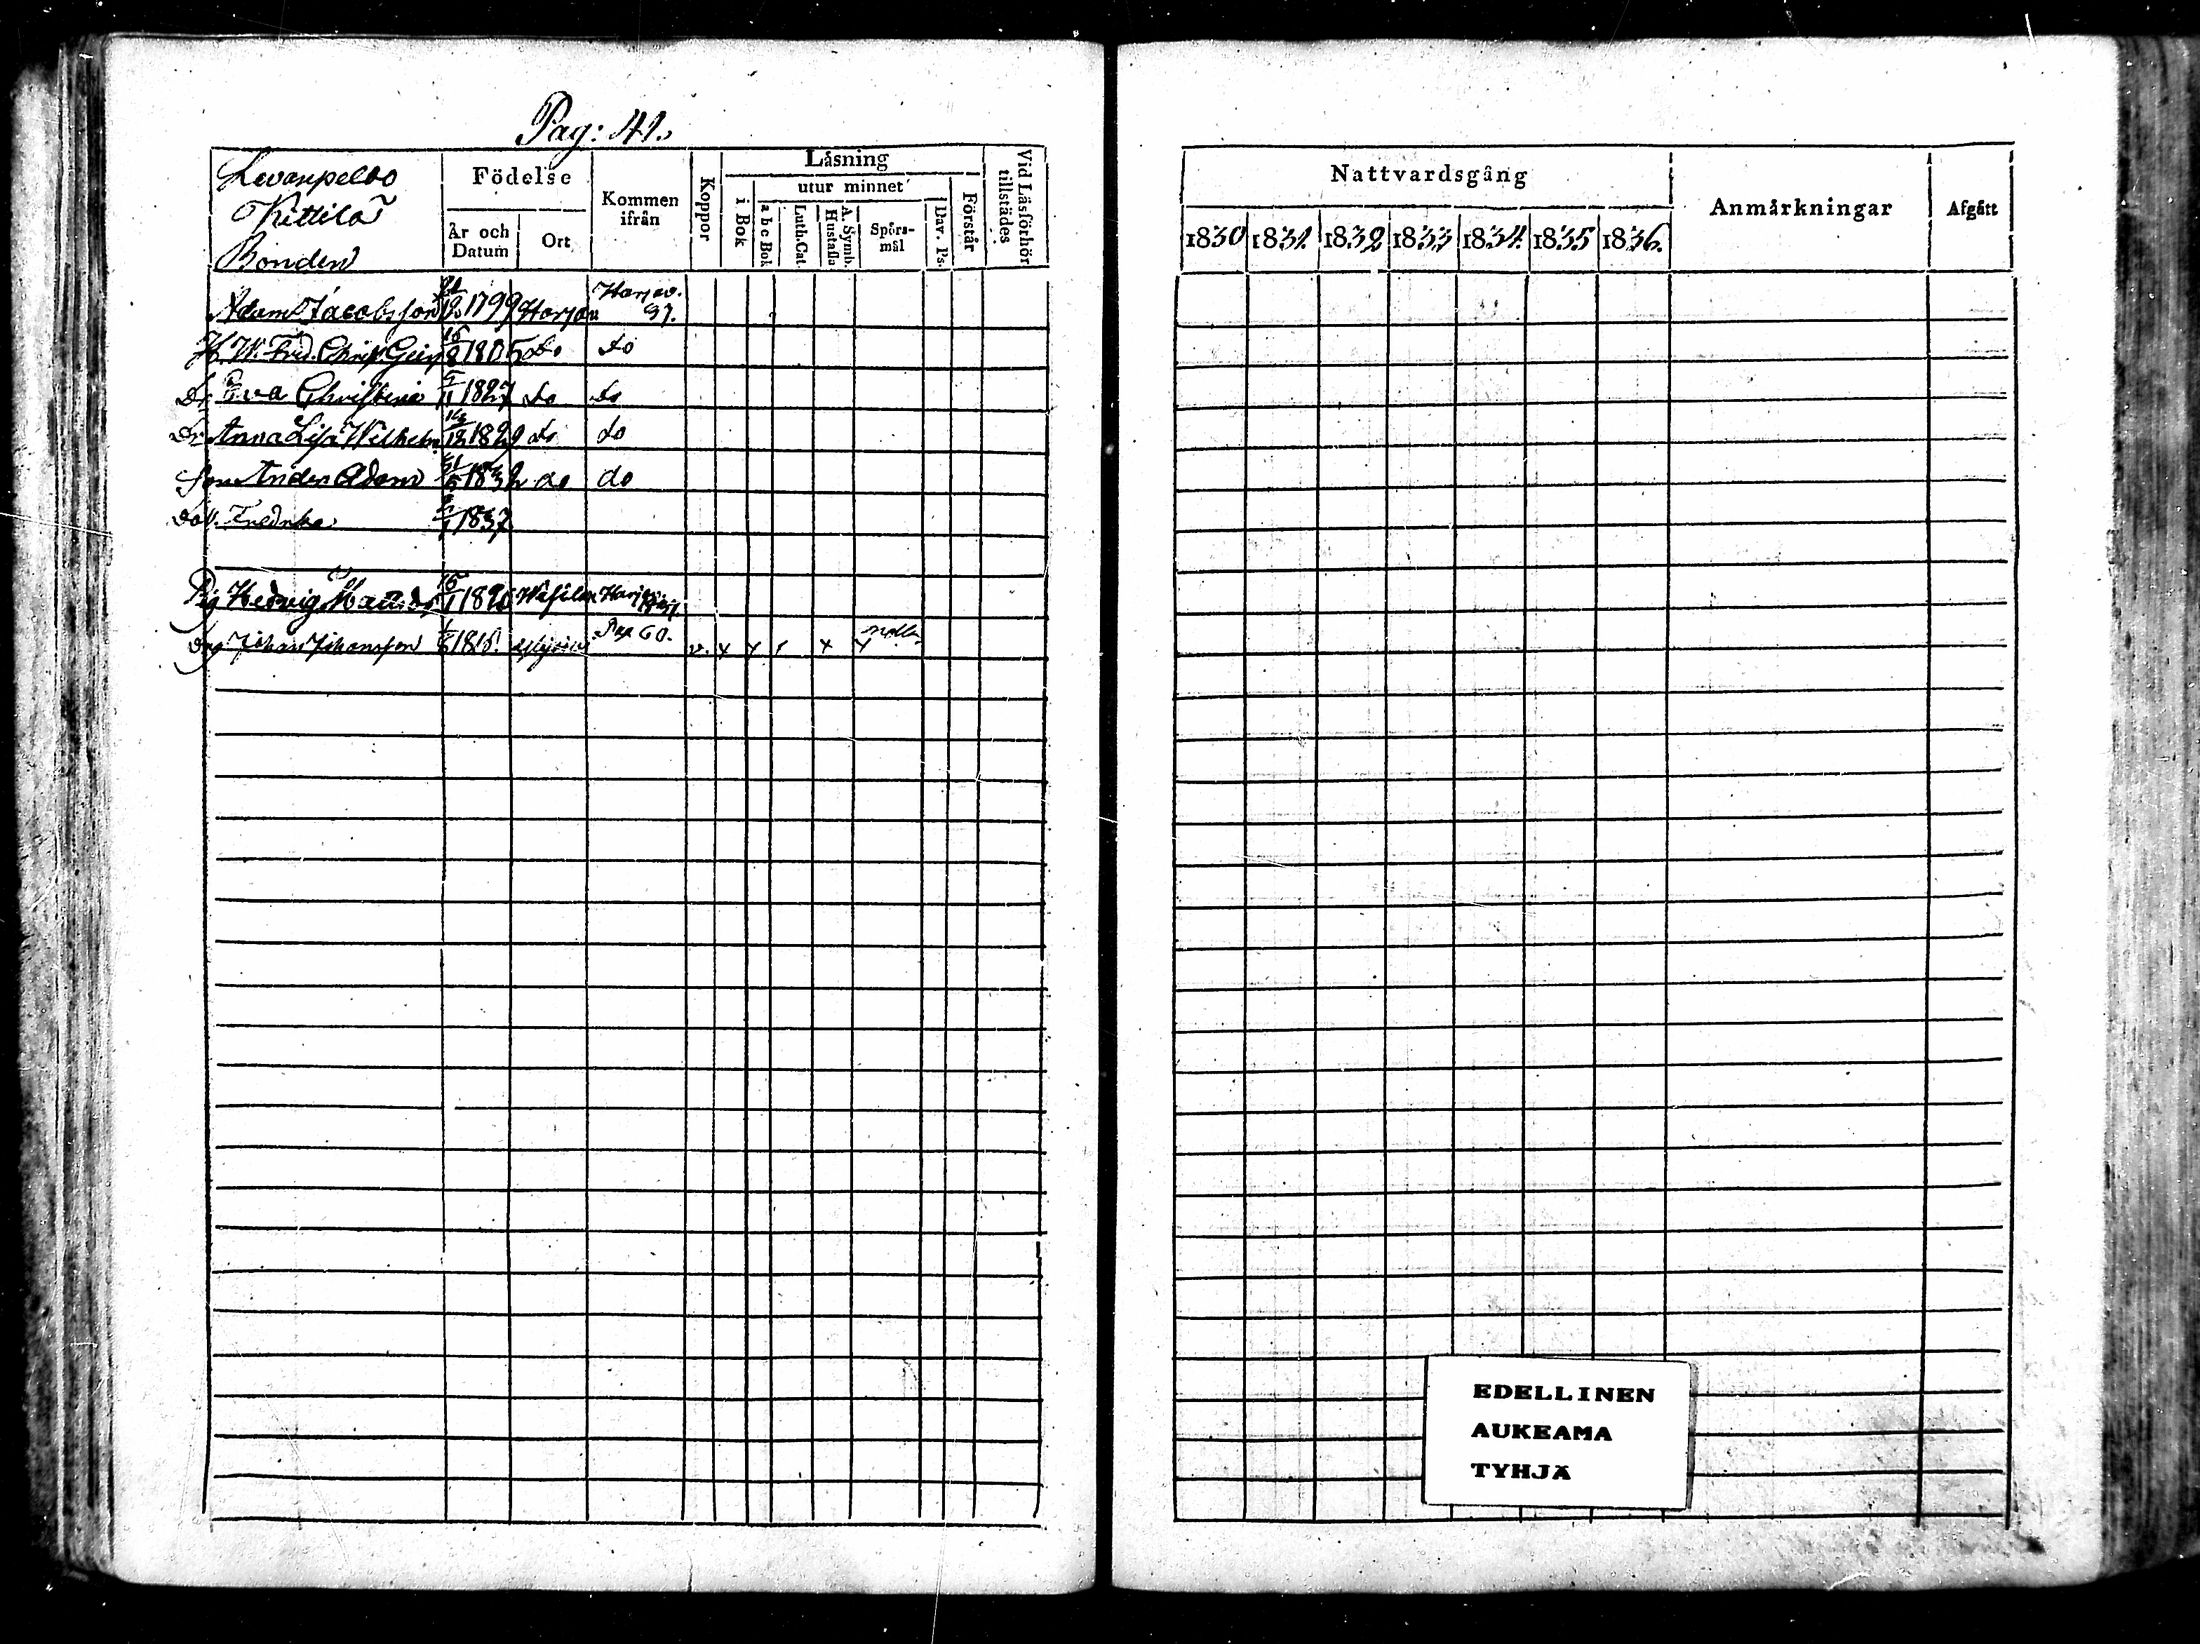 Pag: 41.
Levanpelto
Kittilä
Bonden
Födelse
År och Datum
Ort
Kommen ifrån
Koppor
Läsning
i Bok
utur minnet
a b c Bok
Luth. Cat.
A. Symb. Hustafla
Spörs-mål
Dav. Ps.
Förstår
Vid Läsförhör tillstädes
Adam Jacobsson 1799 Harjau Harjav. 97.
H. W. Fred. Christ. 16/8 1805 do do
Dr Eva Christina 5/11 1827 do do
Dr Anna Lisa Wilhelm. 1829 do do
Son Anders Adam 1832 do do
Dott. Fredrika 1837
Pig Hedvig 15/1 Harjav.
Drg Johan Johansson Pag 60. v. x x x x
Nattvardsgång
1830 1831 1832 1833 1834 1835 1836.
Anmärkningar
Afgått
EDELLINEN
AUKEAMA
TYHJÄ